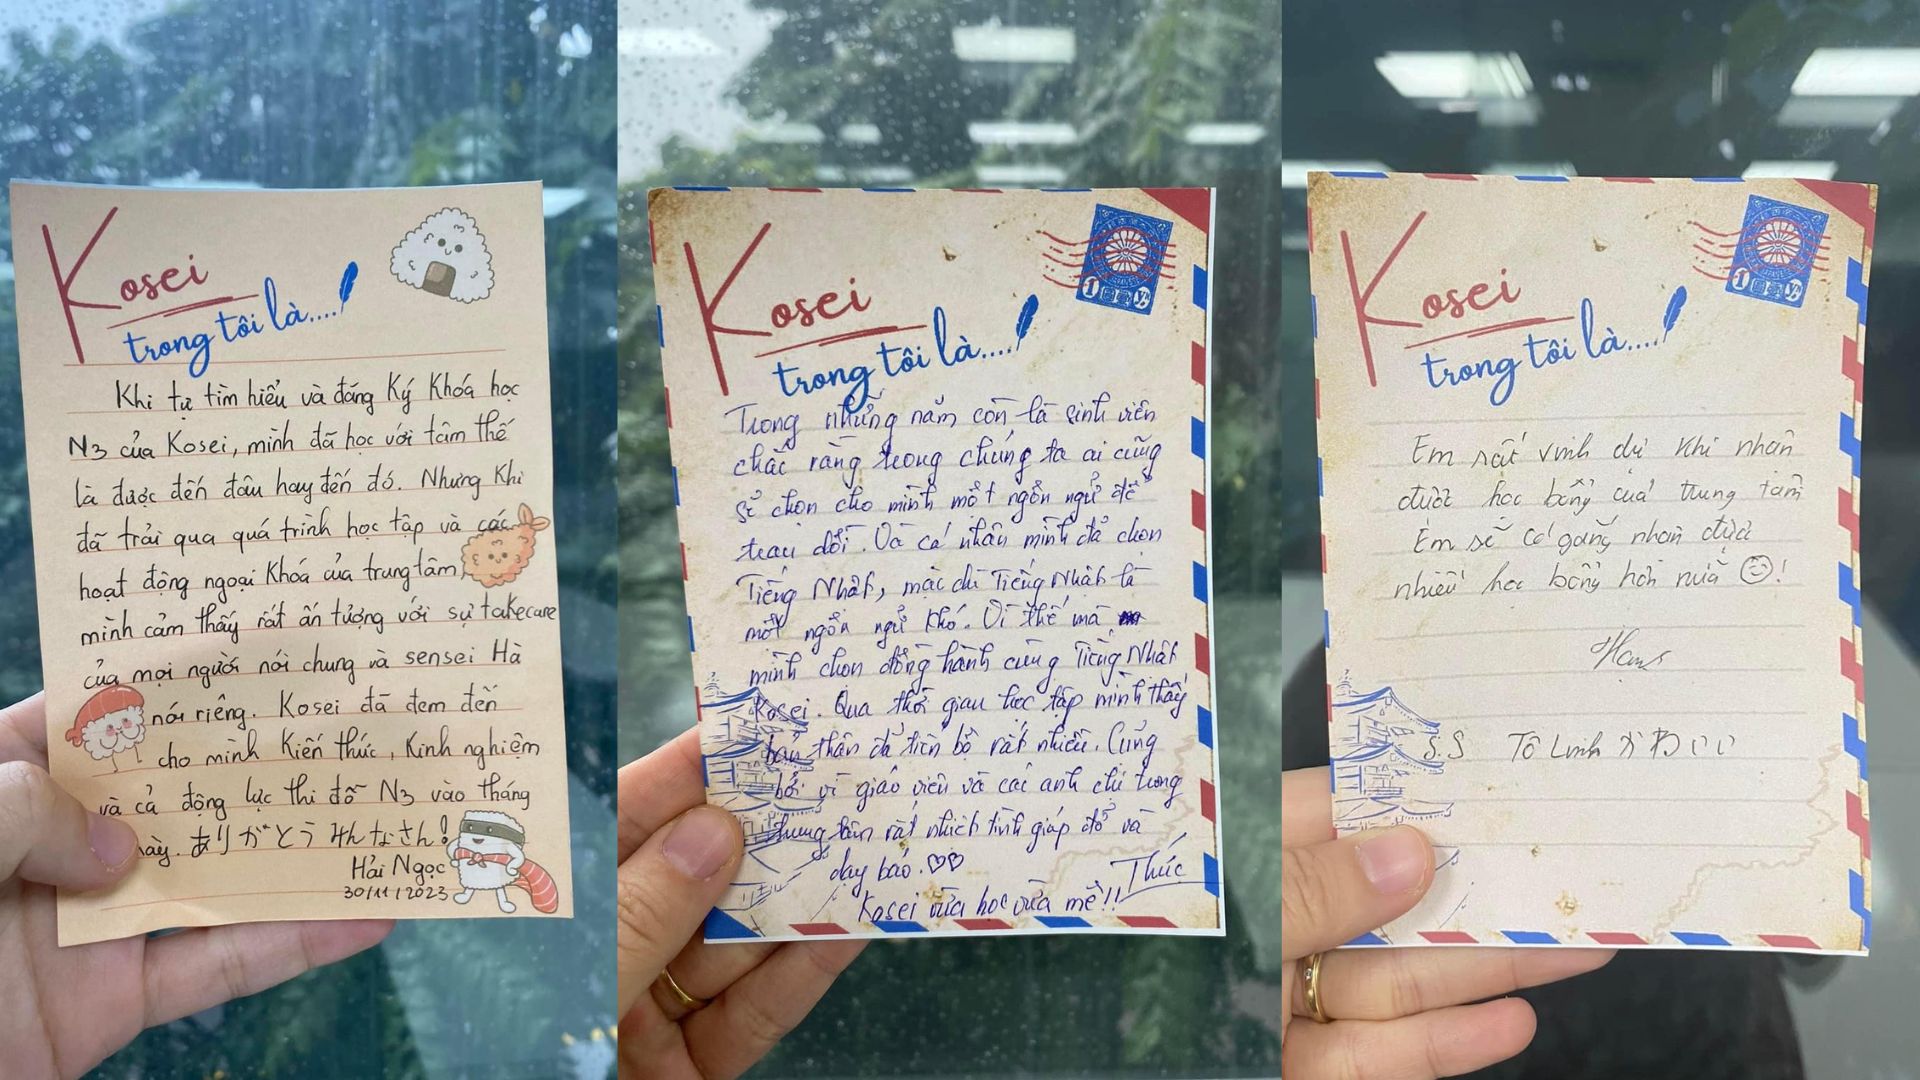 Kosei
trong tôi là....!
Khi tự tìm hiểu và đăng ký khóa học
N3 của Kosei, mình đã học với tâm thế
là được đến đâu hay đến đó. Nhưng khi
đã trải qua quá trình học tập và các
hoạt động ngoại khóa của trung tâm,
mình cảm thấy rất ấn tượng với sự takecare
của mọi người nói chung và sensei Hà
nói riêng. Kosei đã đem đến
cho mình kiến thức, kinh nghiệm
và cả động lực thi đỗ N3 vào tháng
này. ありがとうみんなさん!
Hải Ngọc
30/11/2023
Kosei
trong tôi là....!
Trong những năm còn là sinh viên
chắc rằng trong chúng ta ai cũng
sẽ chọn cho mình một ngôn ngữ để
trau dồi. Và cá nhân mình đã chọn
Tiếng Nhật, mặc dù Tiếng Nhật là
một ngôn ngữ khó. Vì thế mà
mình chọn đồng hành cùng Tiếng Nhật
Kosei. Qua thời gian học tập mình thấy
bản thân đã tiến bộ rất nhiều. Cũng
bởi vì giáo viên và các anh chị trong
trung tâm rất nhiệt tình giúp đỡ và
dạy bảo. ♡♡
Thức
Kosei vừa học vừa mê!!
Kosei
trong tôi là....!
Em rất vinh dự khi nhận
được học bổng của trung tâm
Em sẽ cố gắng nhận được
nhiều học bổng hơn nữa ☺!
S.S Tô Linh かわいい